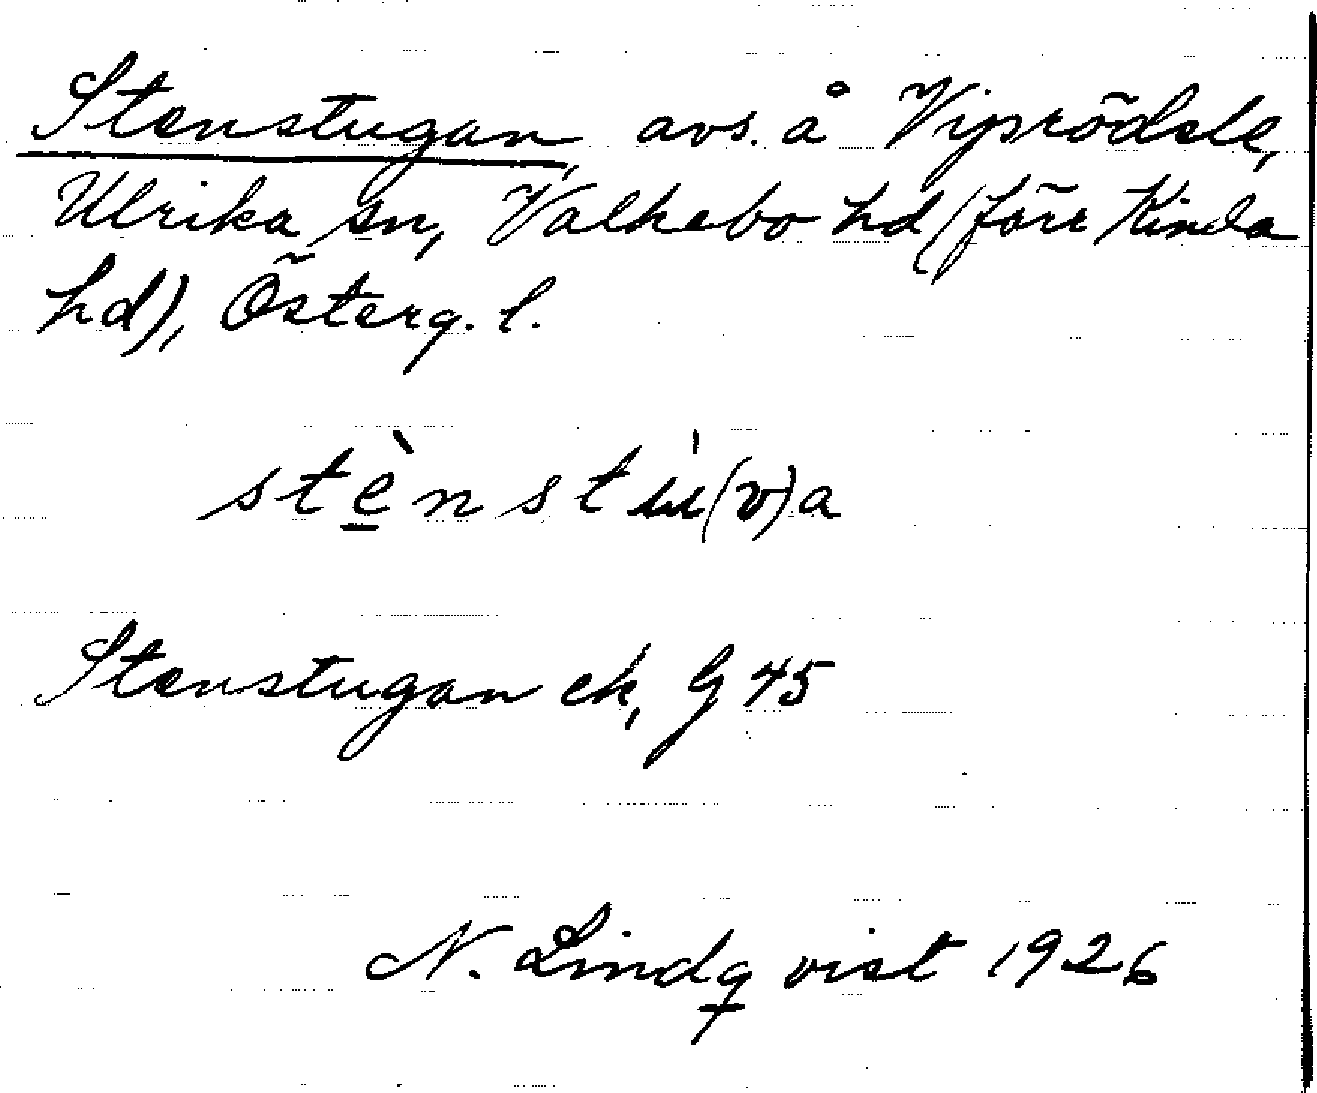 Stenstugan, avs. å Viprödsle,
Ulrika sn, Valkebo hd (förr Kinda
hd), Österg. l.
stè̠nstu̇(v)a
Stenstugan ek, G 45
N. Lindqvist 1926